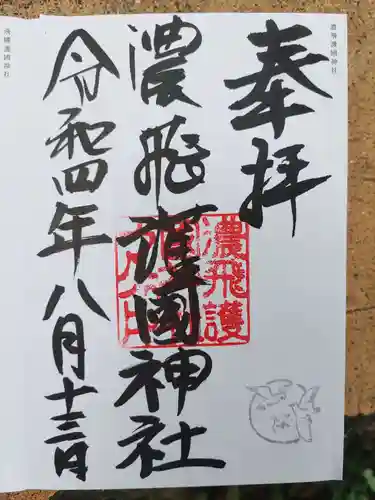 奉拝
濃飛護國神社
令和四年八月十三日
濃飛護國神社
濃飛護